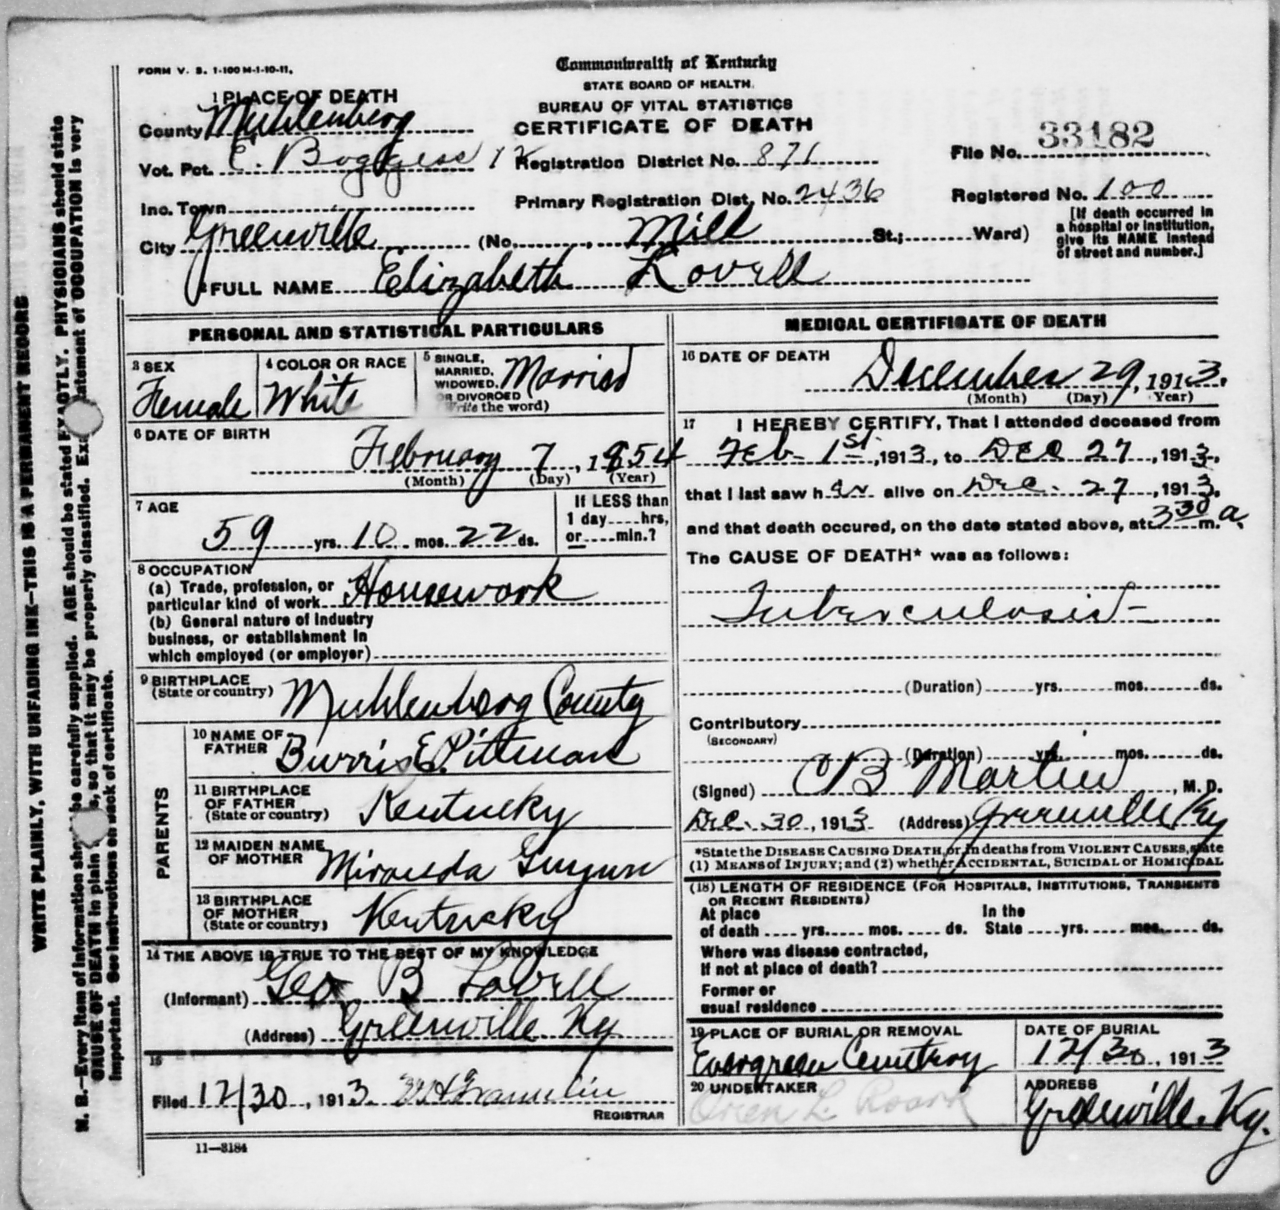 FORM V. S. 1-100 M-1-10-11.
Commonwealth of Kentucky
STATE BOARD OF HEALTH.
BUREAU OF VITAL STATISTICS
CERTIFICATE OF DEATH
1 PLACE OF DEATH
County Muhlenberg
Vot. Pct. E. Boggess 12 Registration District No. 871
File No. 33182
Inc. Town Primary Registration Dist. No. 2436
Registered No. 100
City Greenville (No. , Mill St.; Ward)
[If death occurred in
a hospital or institution,
give its NAME instead
of street and number.]
2 FULL NAME Elizabeth Lovell
PERSONAL AND STATISTICAL PARTICULARS
3 SEX
Female
4 COLOR OR RACE
White
5 SINGLE,
MARRIED,
WIDOWED,
OR DIVORCED
(Write the word)
Married
6 DATE OF BIRTH
February 7, 1854
(Month) (Day) (Year)
7 AGE
59 yrs. 10 mos. 22 ds.
If LESS than
1 day hrs,
or min.?
8 OCCUPATION
(a) Trade, profession, or
particular kind of work Housework
(b) General nature of Industry
business, or establishment in
which employed (or employer)
9 BIRTHPLACE
(State or country) Muhlenberg County
PARENTS
10 NAME OF
FATHER Burris E. Pittman
11 BIRTHPLACE
OF FATHER
(State or country) Kentucky
12 MAIDEN NAME
OF MOTHER
13 BIRTHPLACE
OF MOTHER
(State or country) Kentucky
14 THE ABOVE IS TRUE TO THE BEST OF MY KNOWLEDGE
(Informant) Geo B Lovell
(Address) Greenville Ky
15
Filed 12/30, 1913
REGISTRAR
11—3184
MEDICAL CERTIFICATE OF DEATH
16 DATE OF DEATH
December 29, 1913.
(Month) (Day) Year)
17 I HEREBY CERTIFY, That I attended deceased from
Feb 1st, 1913, to Dec 27, 1913,
that I last saw her alive on Dec. 27, 1913.
and that death occured, on the date stated above, at 3 30 a. m.
The CAUSE OF DEATH* was as follows:
Tuberculosis-
(Duration) yrs. mos. ds.
Contributory
(SECONDARY)
(Duration) yrs. mos. ds.
(Signed) CB Martin, M. D.
Dec. 30, 1913 (Address) Greenville Ky
*State the DISEASE CAUSING DEATH, or in deaths from VIOLENT CAUSES, state
(1) MEANS OF INJURY; and (2) whether ACCIDENTAL, SUICIDAL OR HOMICIDAL
(18) LENGTH OF RESIDENCE (FOR HOSPITALS, INSTITUTIONS, TRANSIENTS
OR RECENT RESIDENTS)
At place In the
of death yrs. mos. ds. State yrs. mos. ds.
Where was disease contracted,
If not at place of death?
Former or
usual residence
19 PLACE OF BURIAL OR REMOVAL
Evergreen Cemetery
DATE OF BURIAL
12/30, 1913
20 UNDERTAKER
Orien L. Roark
ADDRESS
Greenville, Ky.
WRITE PLAINLY, WITH UNFADING INK—THIS IS A PERMANENT RECORD
N. B.—Every item of information should be carefully supplied. AGE should be stated EXACTLY. PHYSICIANS should state
CAUSE OF DEATH in plain , so that it may be properly classified. Exact statement of OCCUPATION is very
important. See instructions on back of certificate.